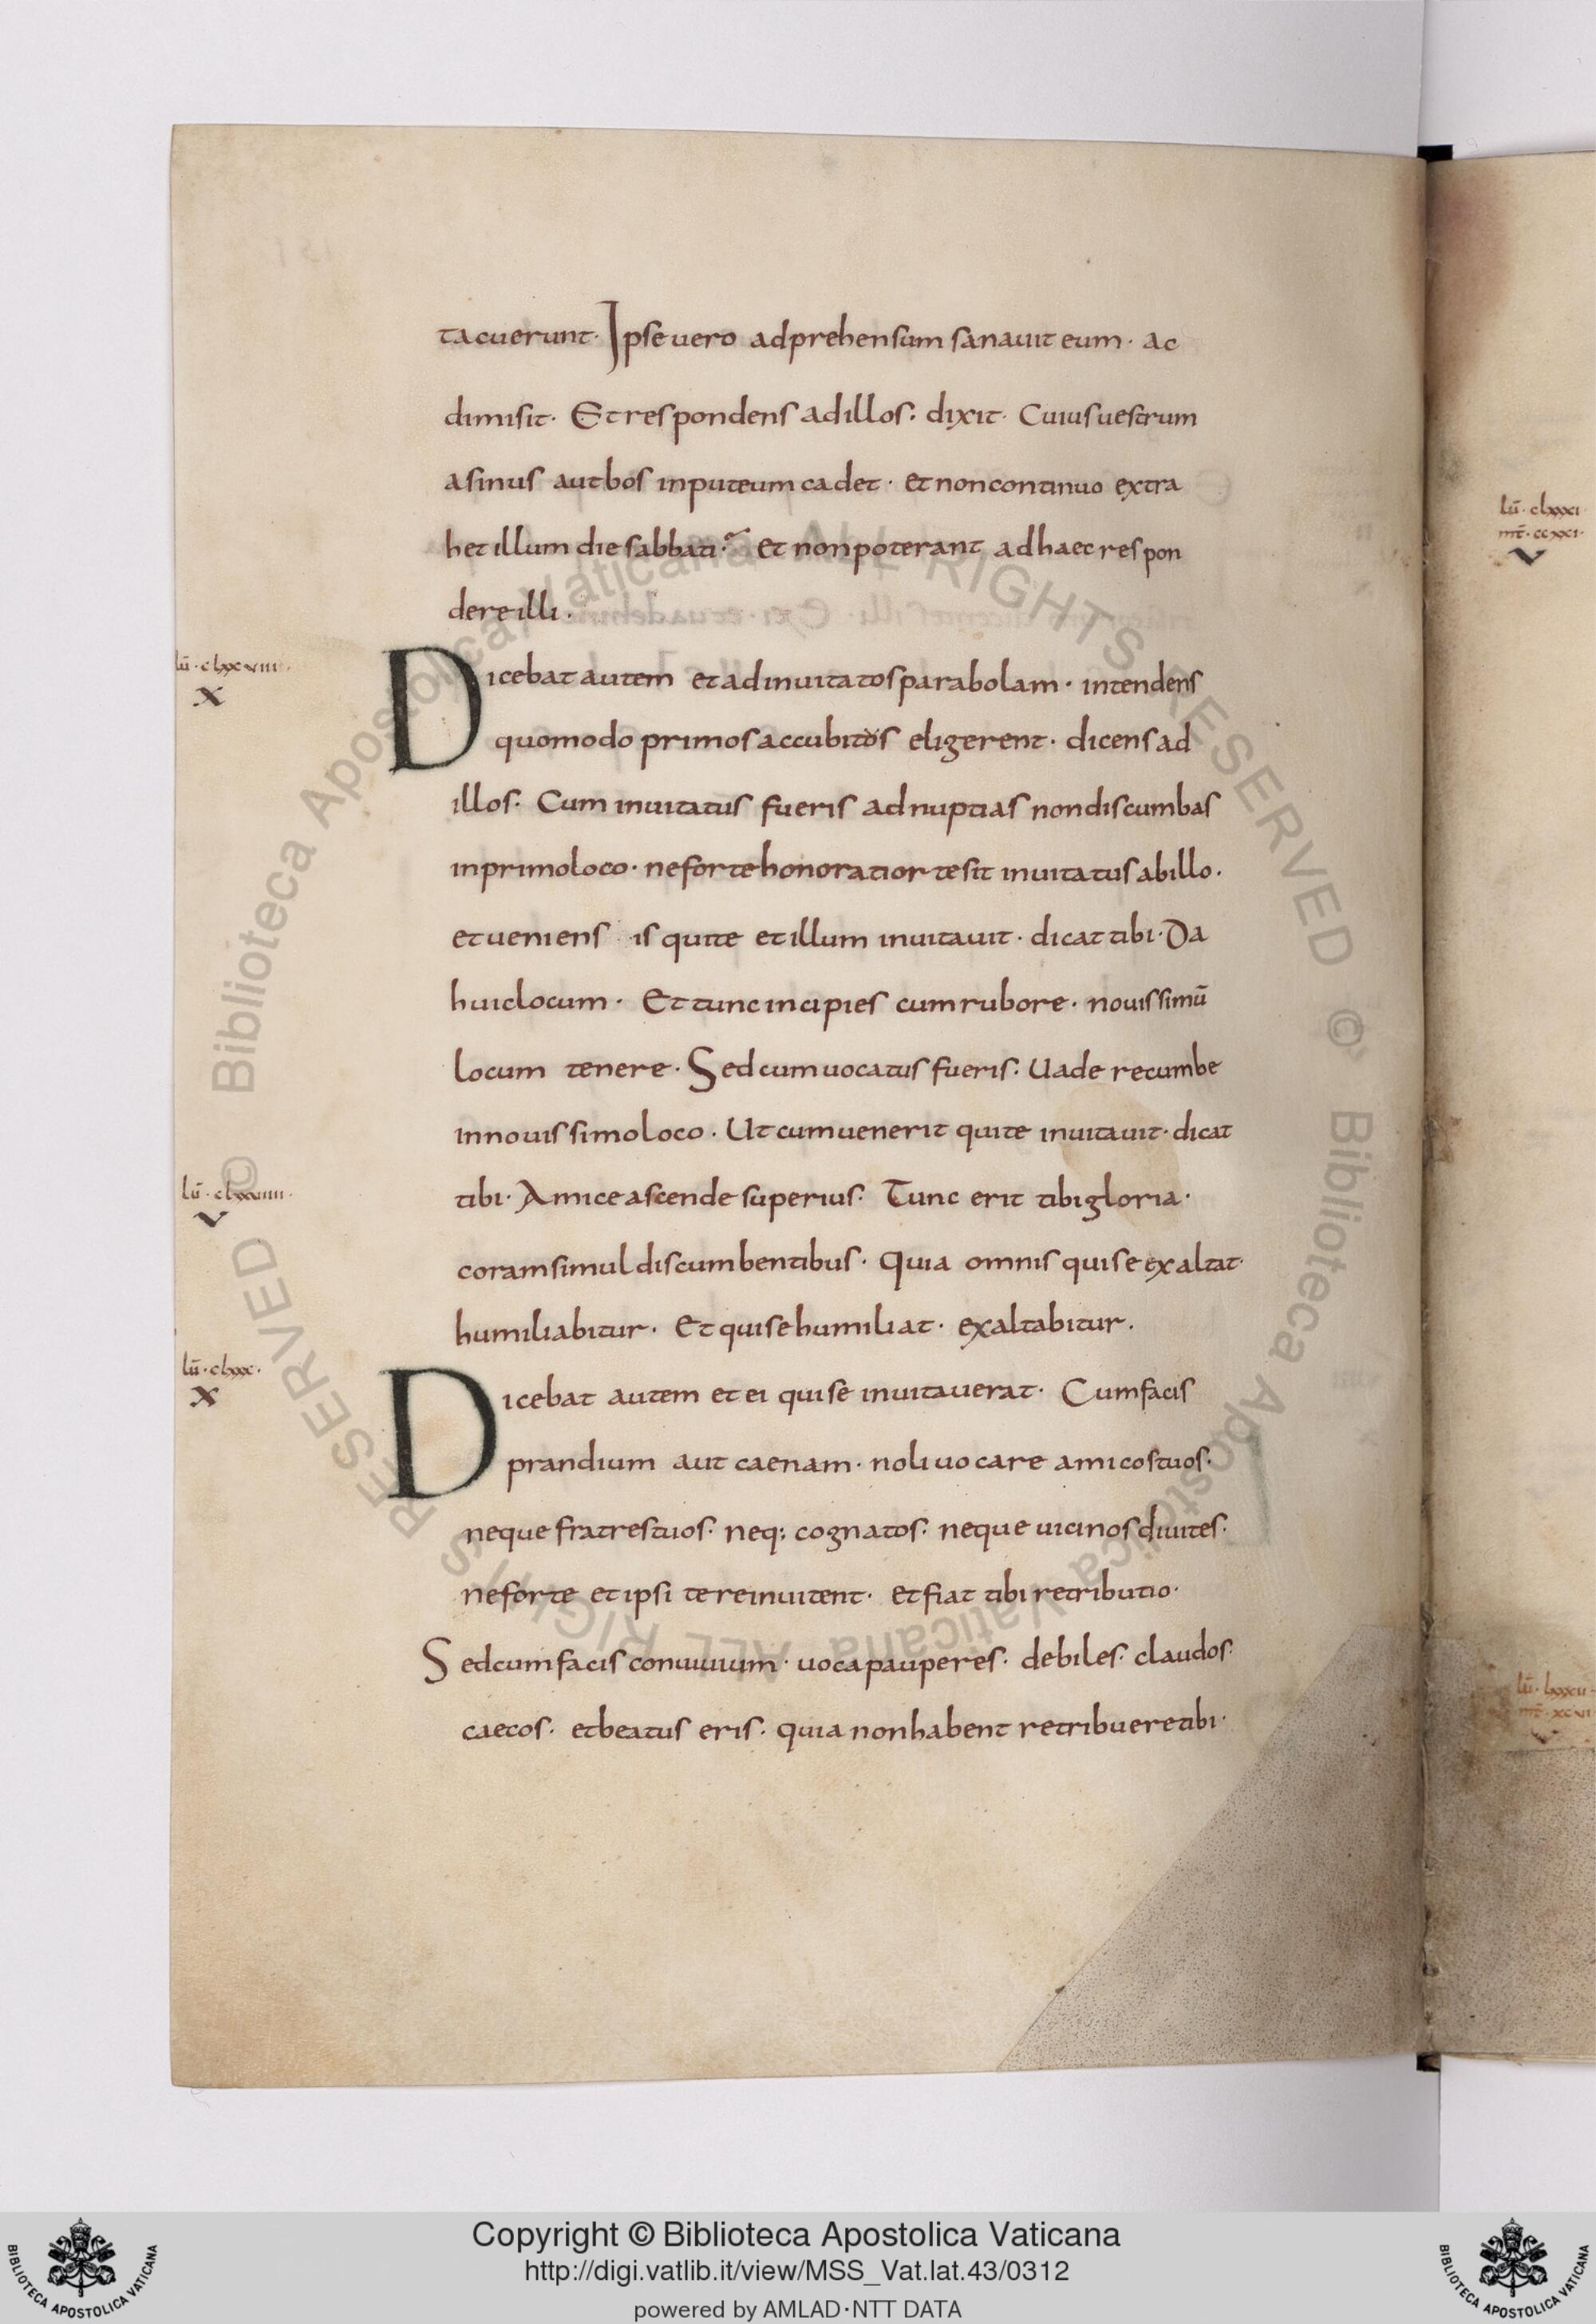 tacuerunt· Ipse uero adprehensum sanauit eum · ac
dimisit· Et respondens ad illos· dixit· Cuius uestrum
asinus aut bos in puteum cadet · et non continuo extra
het illum die sabbati·? Et non poterant ad haec respon
dere illi ·
lū · clxxviii ·
X
Dicebat autem et ad inuitatos parabolam · intendens
quomodo primos accubitos eligerent · dicens ad
illos· Cum inuitatus fueris ad nuptias non discumbas
in primo loco · ne forte honoratior te sit inuitatus ab illo·
et ueniens is qui te et illum inuitauit · dicat tibi· Da
huic locum · Et tunc incipies cum rubore · nouissimū
locum tenere · Sed cum uocatus fueris · Uade recumbe
in nouissimo loco · Ut cum uenerit qui te inuitauit· dicat
lū · clxxuiiii ·
V
tibi· Amice ascende superius· Tunc erit tibi gloria·
coram simul discumbentibus · Quia omnis qui se exaltat·
humiliabitur · Et qui se humiliat · exaltabitur ·
lū · clxxx ·
X
Dicebat autem et ei qui se inuitauerat · Cum facis
prandium aut caenam · noli uocare amicos tuos·
neque fratres tuos· neq; cognatos· neque uicinos diuites·
ne forte et ipsi te reinuitent · et fiat tibi retributio·
Sed cum facis conuiuium · uoca pauperes· debiles· claudos·
caecos· et beatus eris · quia non habent retribuere tibi·
lū · clxxxi ·
mt̄ · ccxxi ·
V
lū · lxxxii ·
mt̄ · xcvi
V
© Biblioteca Apostolica Vaticana ALL RIGHTS RESERVED
© Biblioteca Apostolica Vaticana ALL RIGHTS RESERVED
Copyright © Biblioteca Apostolica Vaticana
http://digi.vatlib.it/view/MSS_Vat.lat.43/0312
powered by AMLAD·NTT DATA
BIBLIOTECA APOSTOLICA VATICANA
BIBLIOTECA APOSTOLICA VATICANA